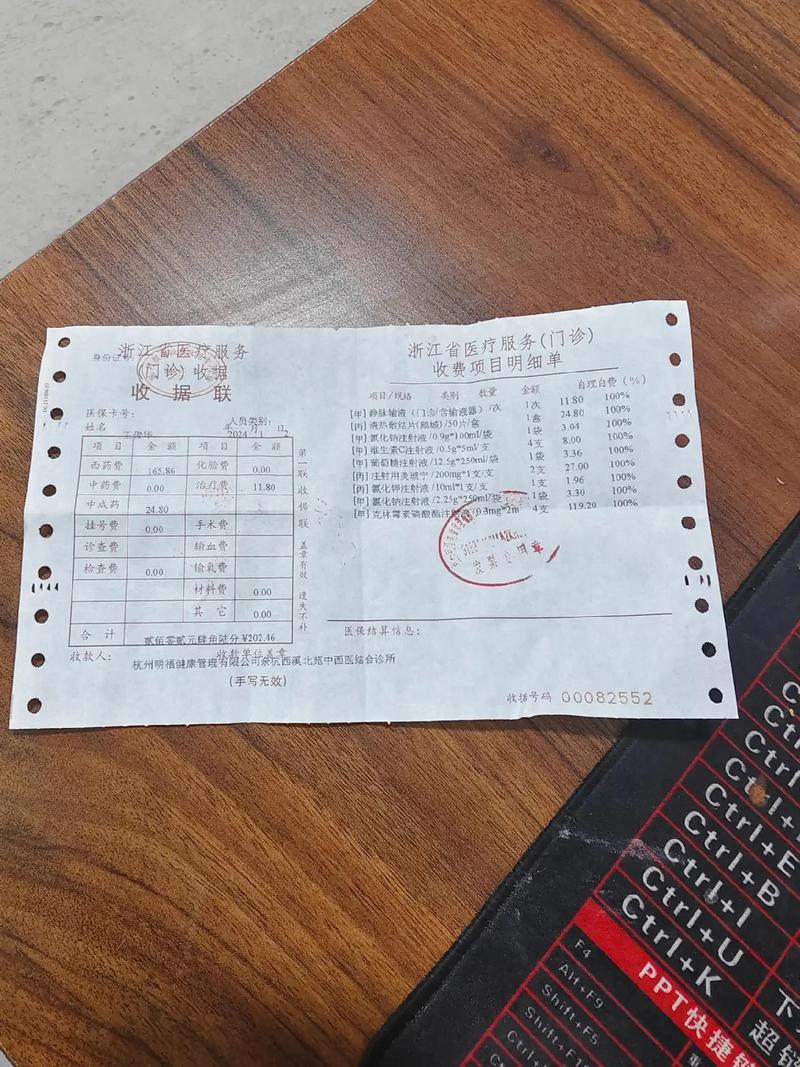 浙江省医疗服务
(门诊)收据
收 据 联
医保卡号:
人员类别:
姓名
2024
项 目 金 额 项 目 金 额
西药费 165.86 化验费 0.00
中药费 0.00 治疗费 11.80
中成药 24.80
挂号费 0.00 手术费
诊查费 输血费
检查费 0.00 输氧费
材料费 0.00
其 它 0.00
合 计 贰佰零贰元肆角陆分 ¥202.46
第一联 收据联 盖章有效 遗失不补
收款人: 收款单位盖章
杭州明福健康管理有限公司余杭西溪北苑中西医结合诊所
(手写无效)
浙江省医疗服务(门诊)
收费项目明细单
项目/规格 类别 数量 金额 自理自费(%)
[甲]静脉输液(门诊/含输液器)/次 1次 11.80 100%
[丙]清热散结片(鹅城)/50片/盒 1盒 24.80 100%
[甲]氯化钠注射液/0.9g*100ml/袋 1袋 3.04 100%
[甲]维生素C注射液/0.5g*5ml/支 4支 8.00 100%
[甲]葡萄糖注射液/12.5g*250ml/袋 1袋 3.36 100%
[丙]注射用炎琥宁/200mg*1支/支 2支 27.00 100%
[丙]氯化钾注射液/10ml*1支/支 1支 1.96 100%
[甲]氯化钠注射液/2.25g*250ml/袋 1袋 3.30 100%
[甲]克林霉素磷酸酯注射液/0.3mg*2m 4支 119.20 100%
医保结算信息:
收据号码 00082552
Ctrl+E
Ctrl+B
Ctrl+I
Ctrl+U
Ctrl+K
PPT快捷键
F4
Alt+F9
Shift+F5